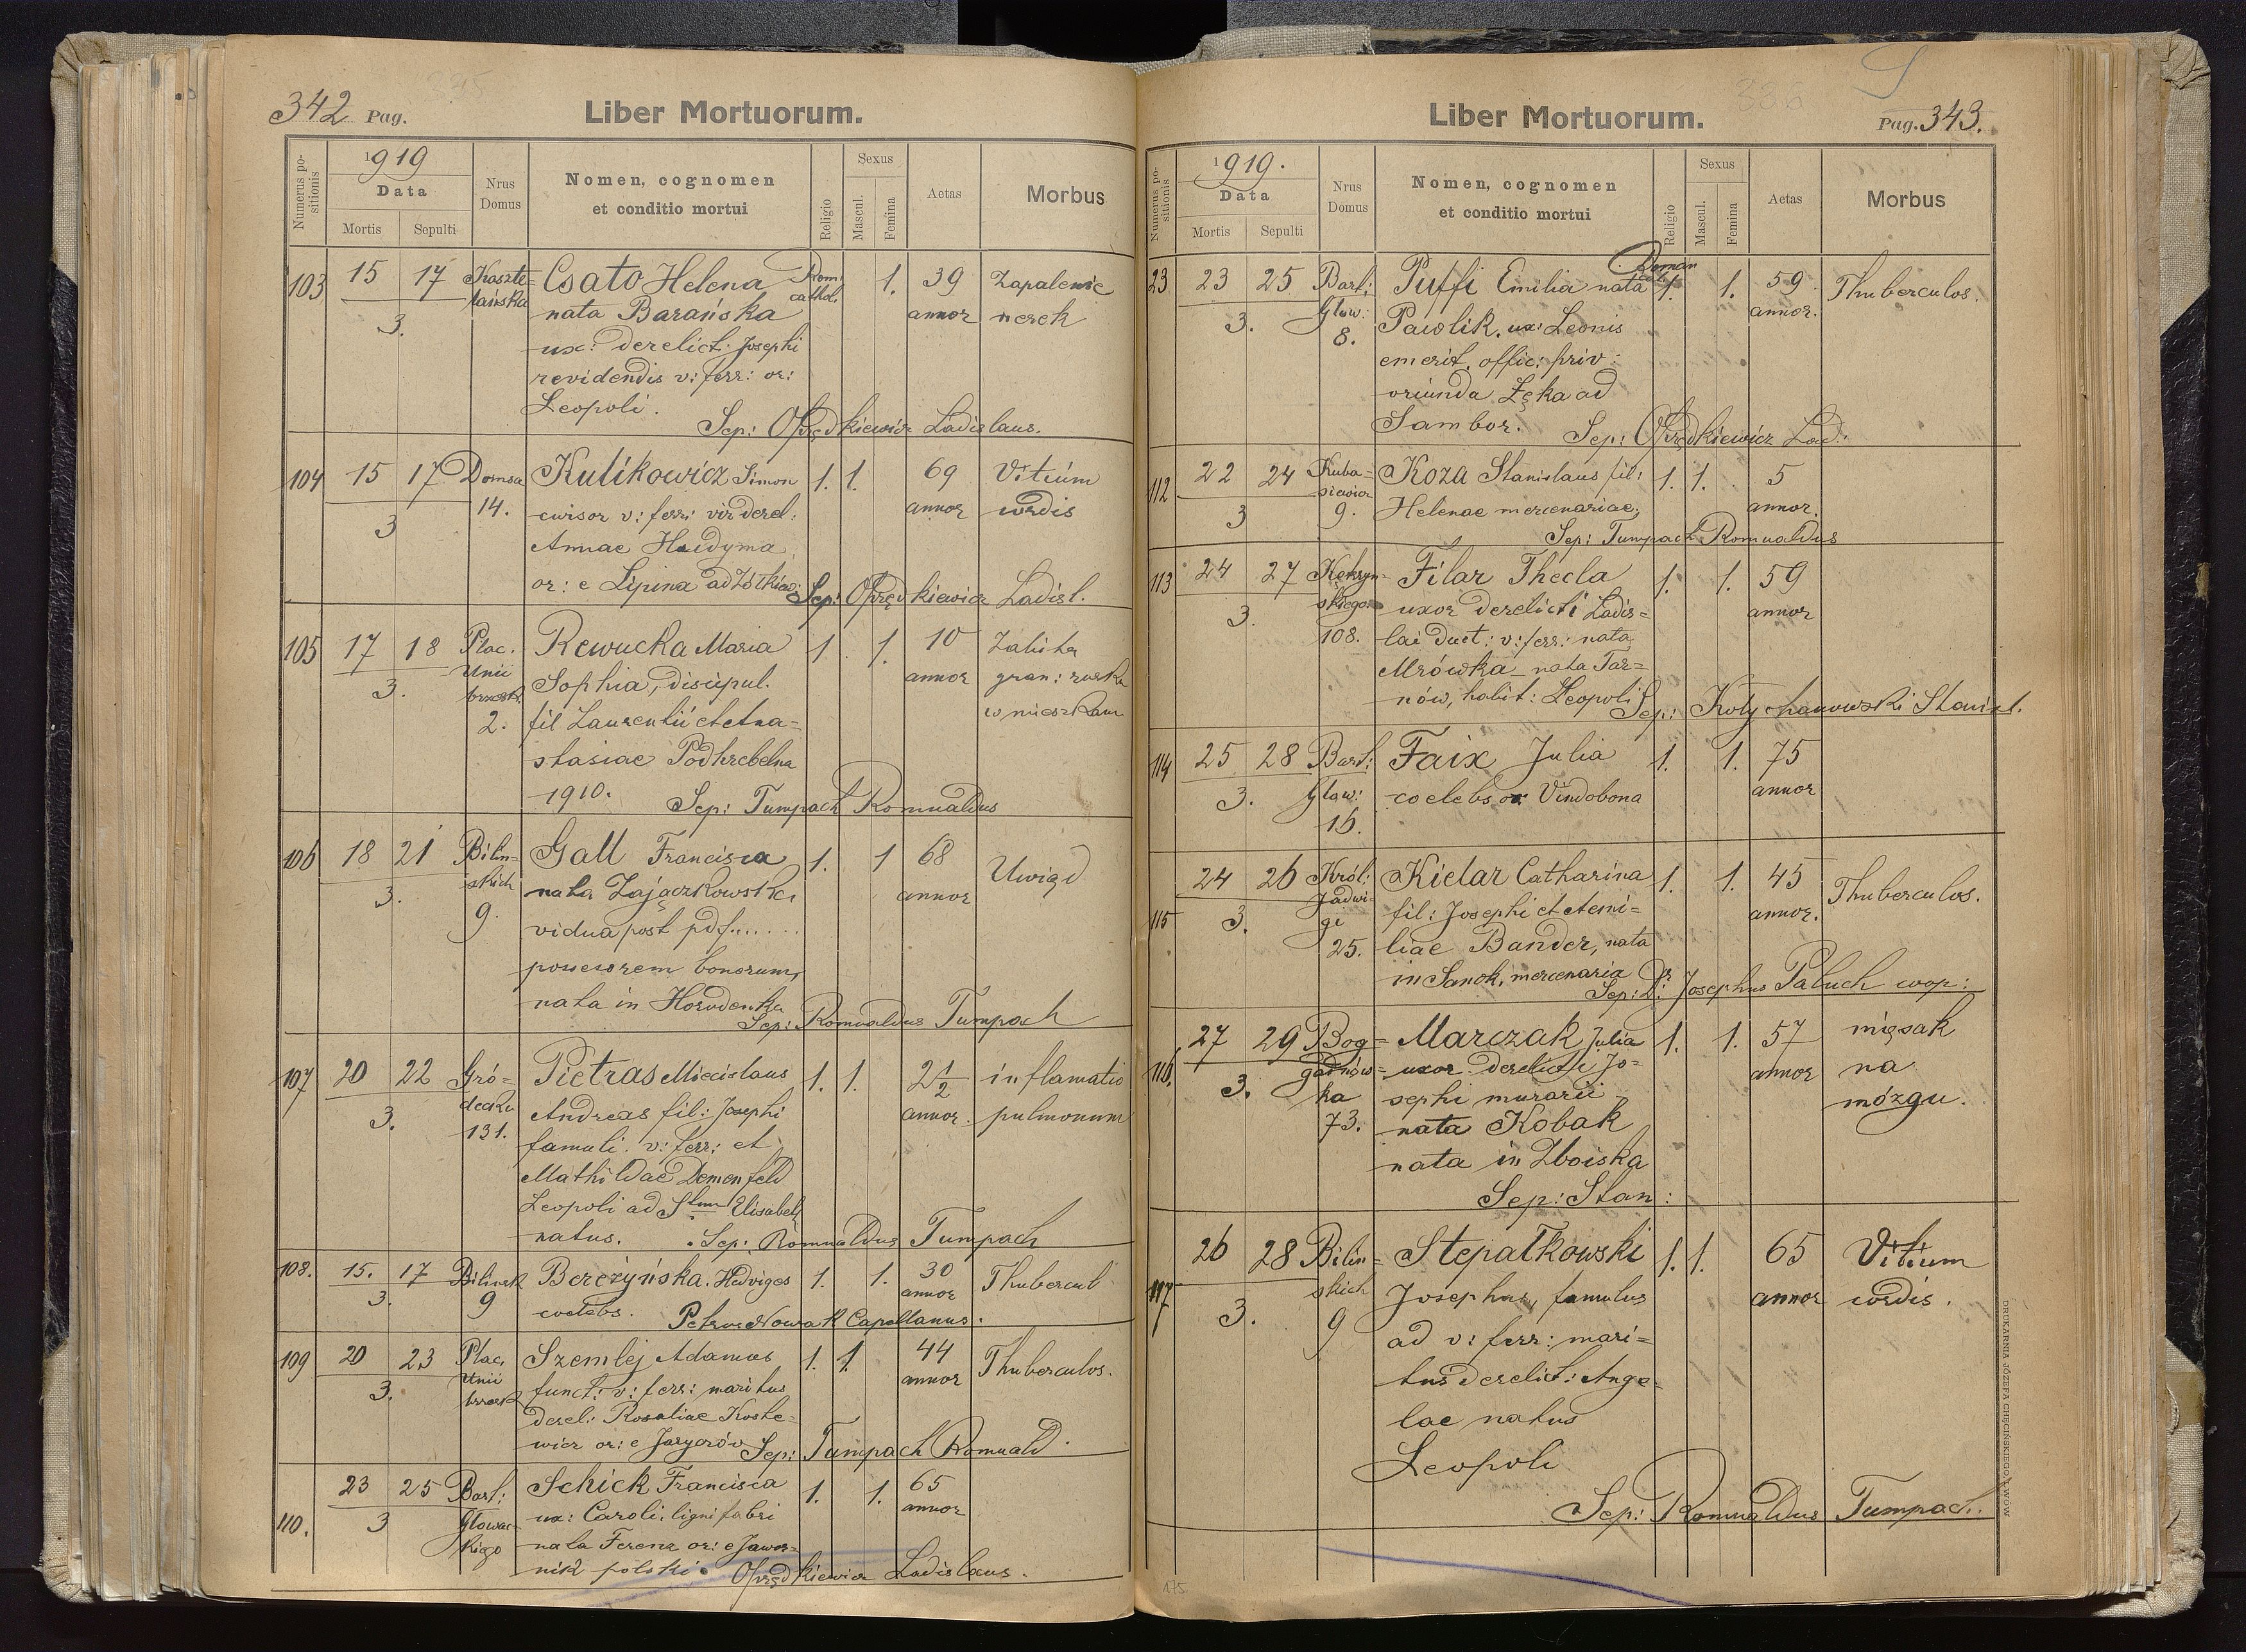 342 Pag.
Liber Mortuorum.
Numerus positionis
1919
Data
Mortis
Sepulti
Nrus Domus
Nomen, cognomen
et conditio mortui
Religio
Sexus
Mascul.
Femina
Aetas
Morbus
103 15 17 Kaszte= Csato Helena Rom: 1. 39 Zapalenie
3. lańska nata Barańska cathol. annor nerek
ux: derelict: Josephi
revidendis v: ferr: or:
Leopoli.
Sep: Oprzędkiewicz Ladislaus.
104 15 17 Domsa Kulikowicz Simon 1. 1. 69 Vitium
3 14. cursor v: ferr: vir derel: annor cordis
Annae Haidyma
or: e Lipina ad Żółkiew:
Sep: Oprzędkiewicz Ladisl.
105 17 18 Plac. Rewucka Maria 1 1. 10 Zabita
3. Unii Sophia, discipul. annor gran: ruska
brzesk. w mieszkan
2. fil Laurentii et Ana=
stasiae Podhrebelna
1910. Sep: Tumpach Romualdus
106 18 21 Bilin= Gall Francisca 1. 1 68 Uwiąd
3. skich nata Zajączkowska annor
9. vidua post pdf......
possessorem bonorum,
nata in Horodenka
Sep: Romualdus Tumpach
107 20 22 Gró= Pietras Miecislaus 1. 1. 2 1/2 inflamatio
3. decka Andreas fil: Josephi annor. pulmonum
131. famuli. v: ferr: et
Mathildae Demenfeld
Leopoli ad Stum Elisabeth
natus. Sep: Romualdus Tumpach
108. 15. 17 Bilinsk Bereżyńska Hedviges 1. 1. 30 Thubercul
3. 9 coelebs. annor
Petrus Nowak Capellanus.
109 20 23 Plac, Szemlej Adamus 1. 1. 44 Thuberculos.
3. Unii funct: v: ferr: maritus annor
brzesk derel: Rosaliae Koste=
wicz or: e Jaryczów Sep: Tumpach Romuald.
110. 23 25 Bart: Schick Francisca 1. 1. 65
3 Głowac= ux: Caroli: ligni fabri annor
kiego nata Ferenz or: e Jawor=
nik polski. Oprzędkiewicz Ladislaus.
Liber Mortuorum.
Pag. 343.
Numerus positionis
1919.
Data
Mortis
Sepulti
Nrus Domus
Nomen, cognomen
et conditio mortui
Religio
Sexus
Mascul.
Femina
Aetas
Morbus
23 23 25 Bart: Puffi Emilia nata Roman 1. 1. 59 Thuberculos.
3. Głow: Pawlik. ux: Leonis annor.
8. emerit. offic: priv:
oriunda Łęka ad
Sambor. Sep: Oprzędkiewicz Lad:
112 22 24 Kuba= Koza Stanislaus fil: 1. 1. 5
3 siewicz 9. Helenae mercenariae, annor.
Sep: Tumpach Romualdus
113 24 27 Kętrzyn= Filar Thecla 1. 1. 59
3. skiego uxor derelicti Ladis= annor
108. lai duct: v: ferr: nata
Mrówka nata Tar=
nów, habit: Leopoli
Sep: Kolychanowski Stanisl.
114 25 28 Bart: Faix Julia 1. 1. 75
3. Głow: coelebs or Vindobona annor
16.
115 24 26 Król: Kielar Catharina 1. 1. 45 Thuberculos.
3. Jadwi= fil: Josephi et Aemi= annor.
gi 25. liae Bander, nata
in Sanok, mercenaria
Sep: Dr: Josephus Paluch coop:
116. 27 29 Bog= Marczak Julia 1. 1. 57 mięsak
3. danów= uxor derelicti Jo= annor na
ka sephi murarii mózgu.
73. nata Kobak
nata in Zboiska
Sep: Stan:
117 26 28 Bilin= Stepałkowski 1. 1. 65 Vitium
3. skich Josephus, famulus annor cordis.
9 ad v: ferr: mari=
tus derelict: Ange=
lae natus
Leopoli
Sep: Romualdus Tumpach.
175
DRUKARNIA JÓZEFA CHĘCIŃSKIEGO, LWÓW